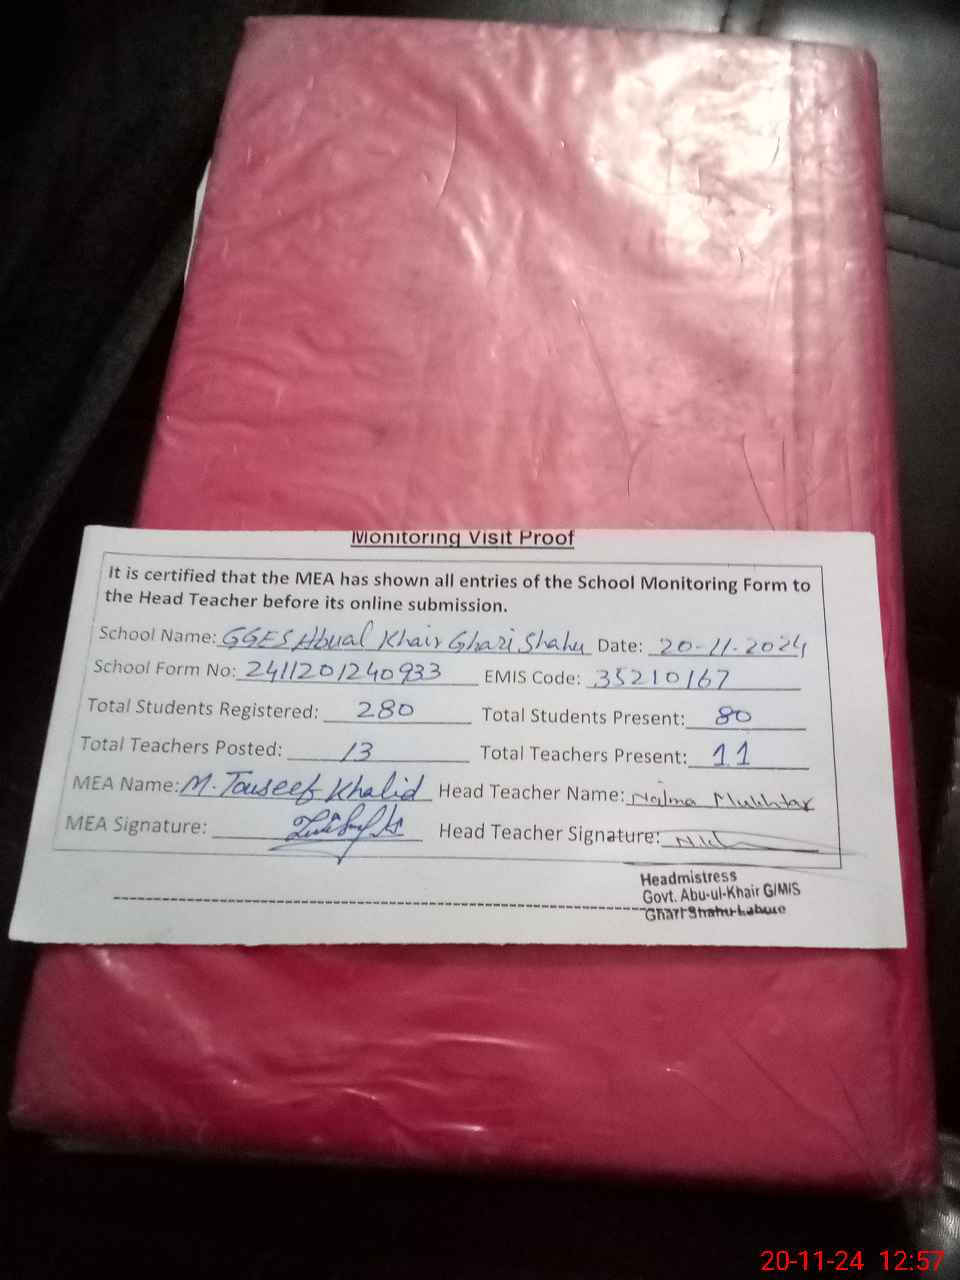 Monitoring Visit Proof
It is certified that the MEA has shown all entries of the School Monitoring Form to
the Head Teacher before its online submission.
School Name: GGES Abual Khair Ghari Shahu Date: 20-11-2024
School Form No: 2411201240933 EMIS Code: 35210167
Total Students Registered: 280 Total Students Present: 80
Total Teachers Posted: 13 Total Teachers Present: 11
MEA Name: M. Touseef Khalid Head Teacher Name: Naima Mukhtar
MEA Signature: Head Teacher Signature:
Headmistress
Govt. Abu-ul-Khair G/M/S
Ghari Shahu Lahore
20-11-24 12:57